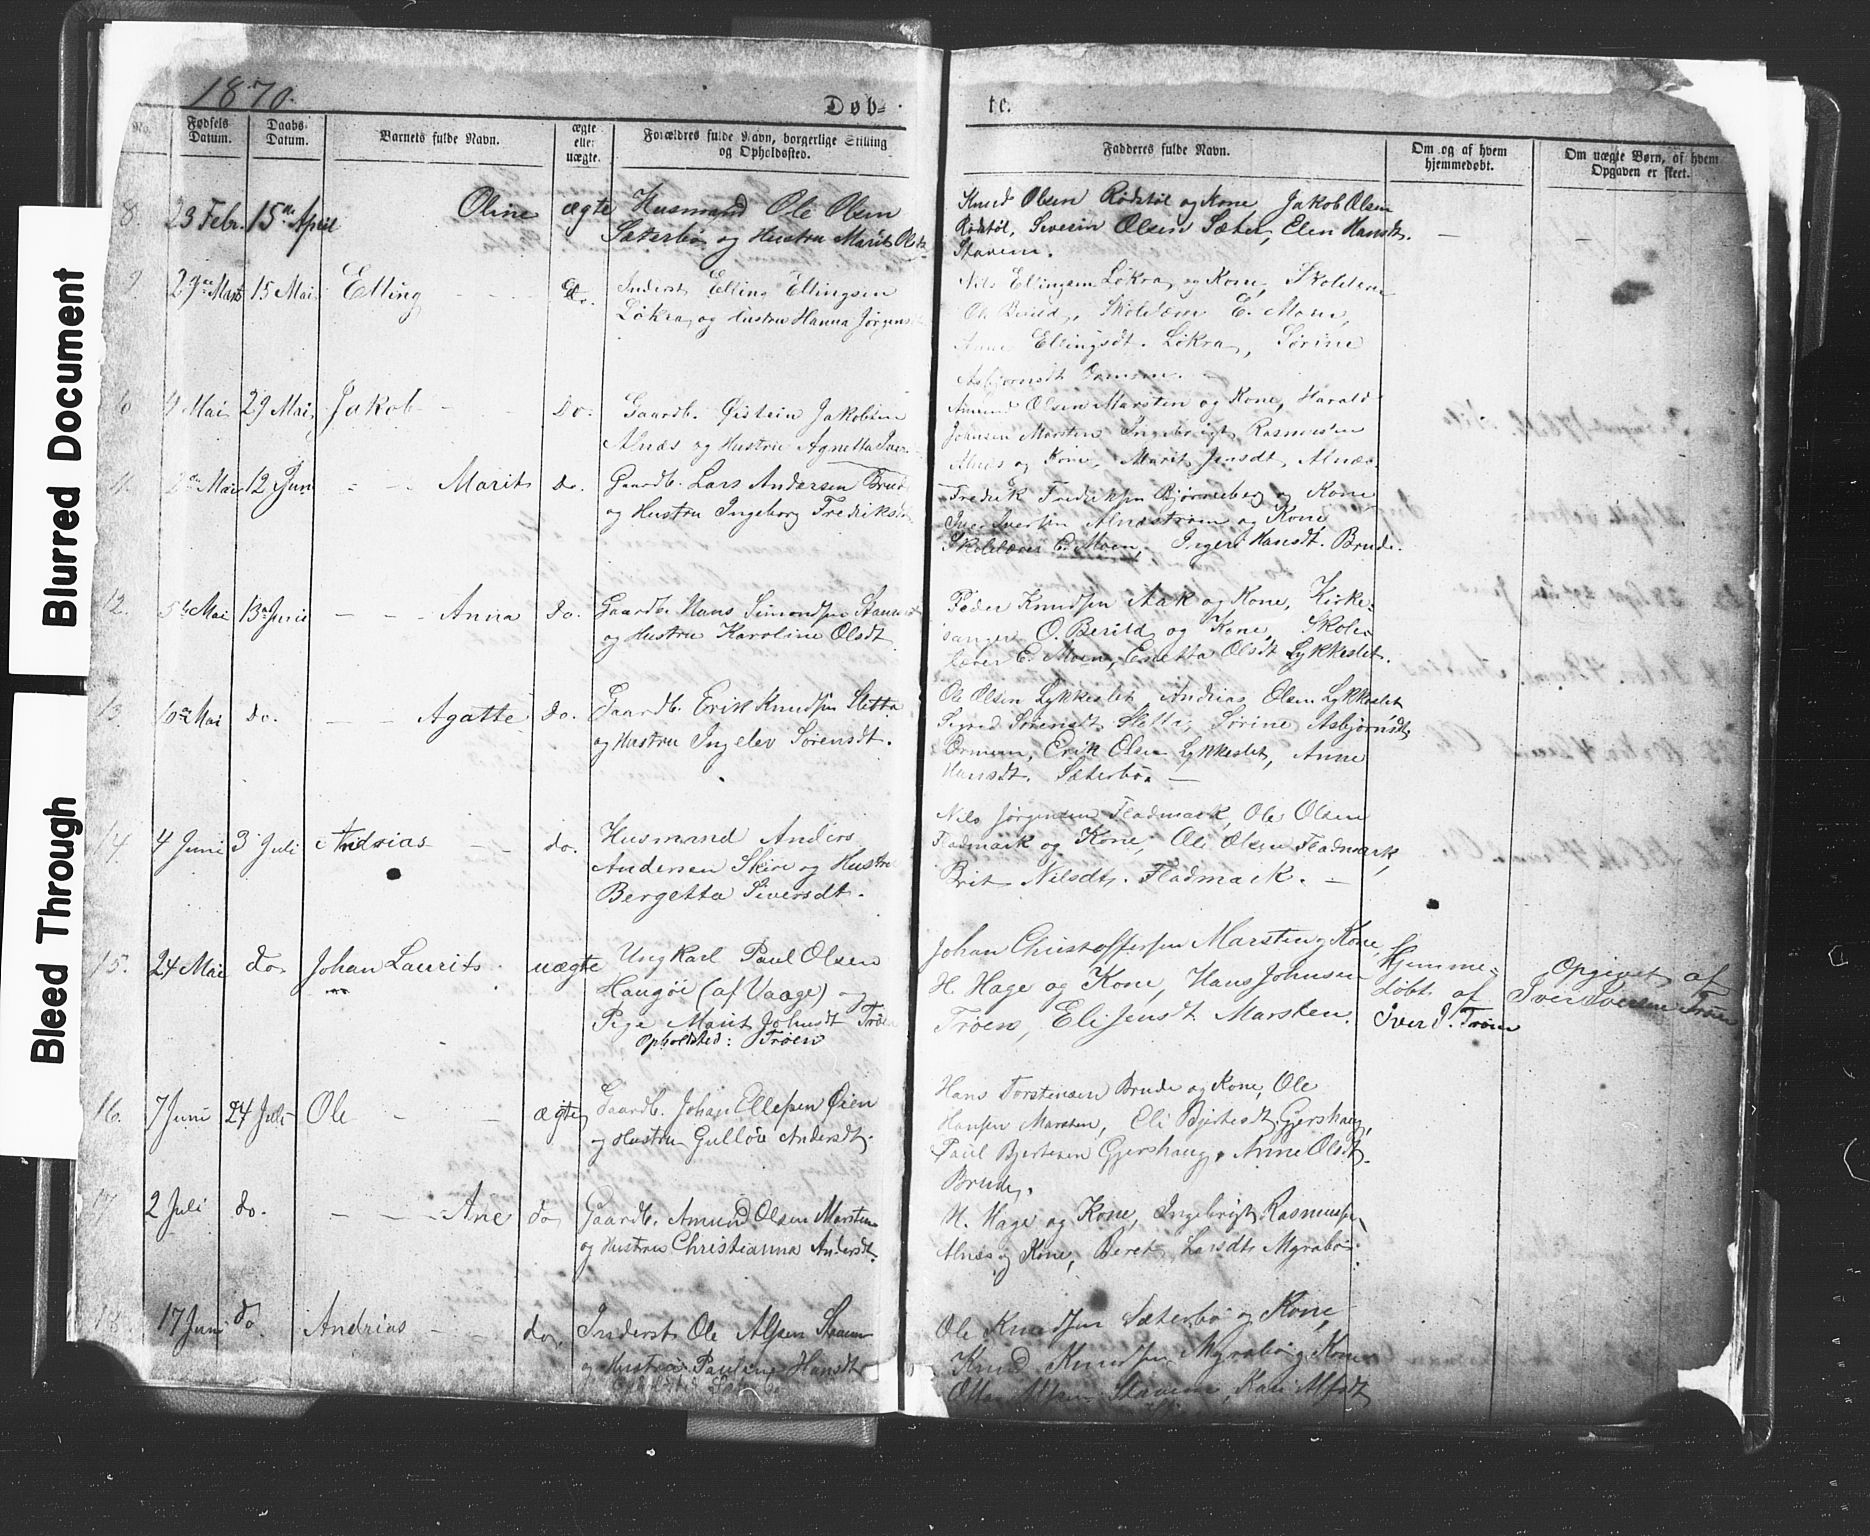 Blurred Document
Bleed Through
1870.
Døb=
te.
No.
Fødsels Datum.
Daabs Datum.
Barnets fulde Navn.
ægte eller uægte.
Forældres fulde Navn, borgerlige Stilling og Opholdssted.
Fadderes fulde Navn.
Om og af hvem hjemmedøbt.
Om uægte Børn, af hvem Opgaven er skeet.
8. 23 Febr. 15de April Oline ægte Husmand Ole Olsen
Sæterbø og Hustru Marit Olsdt
Knud Olsen Rødstøl og Kone Jakob Olsen
Rødstøl, Severin Olsen Sæter, Elen Hansdt.
Stavem.
9. 15 Mai Elling Do. Inderst Elling Ellingsen
Løkra og Hustru Hanna Jørgens
Nils Ellingsen Løkra og Kone, Skolelærer
O. Berild, Skolelærer E. Moen,
Anne Ellingsdt. Løkra, Sørine
Asbjørnsdt Ormem.
4 Mai 29 Mai Jakob Do. Gaardb. Østein Jakobsen
Alnæs og Hustru Agnetta
Amund Olsen Marsten og Kone, Harald
Johnsen Marsten Ingebrigt Rasmusen
Alnæs og Kone, Marit Jensdt. Alnæs.
2den Mai 12 Juni Marit Do. Gaardb. Lars Andersen Brude
og Hustru Ingeborg Fredriksdt
Fredrik Fredriksen Bjørneberg og Kone
Iver Iversen Alnæstrøen og Kone,
Skolelærer E. Moen, Inger Hansdt. Brude.
12. 5te Mai 13de Juni Anna Do. Gaardb. Hans Simondsen Stavem
og Hustru Karoline Olsdt.
Peder Knudsen Aak og Kone, Kirke=
sanger O. Berild og Kone, Skole=
lærer E. Moen, Enetta Olsdt Lykkeslet.
13. 6te Mai do. Agatte do. Gaardb. Erik Knudsen Sletta
og Hustru Ingelev Sørensdt.
Ole Olsen Lykkeslet, Andrias Olsen Lykkeslet
Sigrid Sørensdt. Sletta, Sørine Asbjørnsdt
Ormem, Erik Olsen Lykkeslet, Anne
Hansdt. Sæterbø.
14. 4 Juni 3 Juli Andrias do. Husmand Anders
Andersen Skire og Hustru
Bergetta Siversdt.
Nils Jørgensen Fladmark, Ole Olsen
Fladmark og Kone, Ole Olsen Fladmark,
Brit Nilsdt. Fladmark.
15. 24 Mai do Johan Laurits. uægte Ungkarl Paul Olsen
Haugøi (af Vaage) og
Pige Marit Johnsdt Trøen
Opholdsted: Trøen
Johan Christoffersen Marsten og Kone,
H. Hage og Kone, Hans Johnsen
Trøen, Eli Jensdt. Marsten.
Hjemme=
døbt af
Iver I. Trøen
Opgivet af
Iver Iversen Trøen
16. 7 Juni 24 Juli Ole ægte Gaardb. Johan Ellefsen Øien
og Hustru Gulløv Andersdt.
Hans Torstensen Brude og Kone, Ole
Hansen Marsten, Eli Bjertesdt Gjershaug,
Paul Bjertesen Gjershaug, Anne Olsdt.
Brude.
17. 2 Juli do. Ane do Gaardb. Amund Olsen Marsten
og Hustru Christianna Andersdt.
H. Hage og Kone, Ingebrigt Rasmusen
Alnæs og Kone, Beret Larsdt. Myrabø.
18. 17 Juni do Andrias do, Inderst Ole Alfsen Stavem
og Hustru Pauline Hansdt
Ole Knudsen Sæterbø og Kone,
Knud Knudsen Myrabø og Kone
Alfsen Stavem, Kari Alfsdt